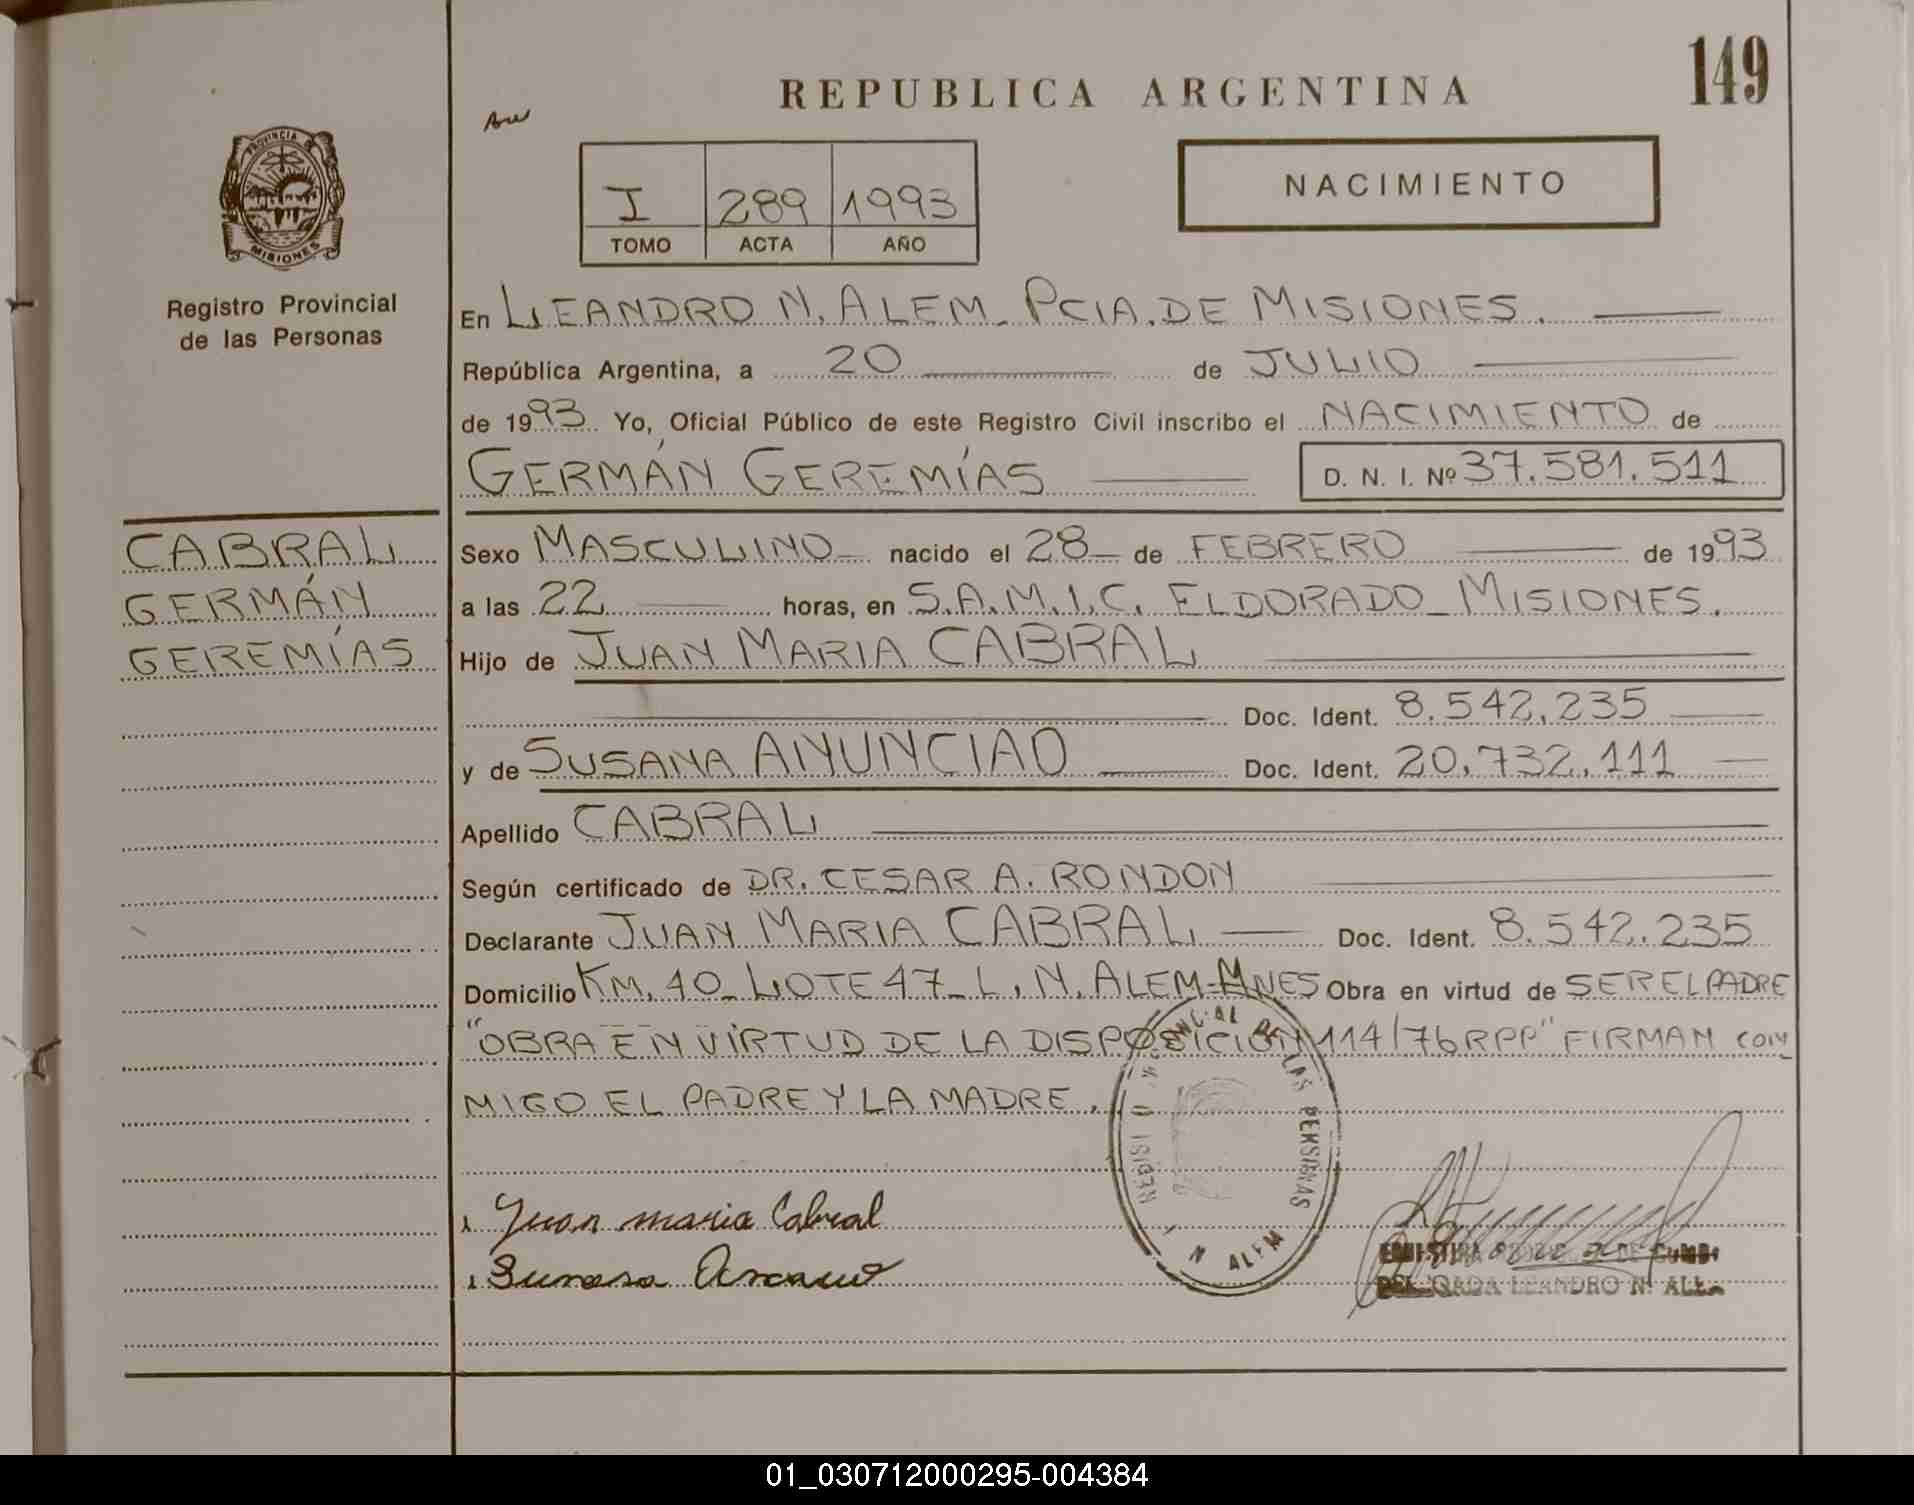 149
REPUBLICA ARGENTINA
PROVINCIA DE
MISIONES
Registro Provincial
de las Personas
NACIMIENTO
I 289 1993
TOMO ACTA AÑO
En LEANDRO N. ALEM - PCIA. DE MISIONES.
República Argentina, a 20 de JULIO
de 1993 Yo, Oficial Público de este Registro Civil inscribo el NACIMIENTO de
GERMÁN GEREMÍAS D. N. I. Nº 37.581.511
CABRAL
GERMÁN
GEREMÍAS
Sexo MASCULINO nacido el 28 de FEBRERO de 1993
a las 22 horas, en S.A.M.I.C. ELDORADO - MISIONES.
Hijo de JUAN MARIA CABRAL
Doc. Ident. 8.542.235
y de SUSANA ANUNCIAO Doc. Ident. 20.732.111
Apellido CABRAL
Según certificado de DR. CESAR A. RONDON
Declarante JUAN MARIA CABRAL Doc. Ident. 8.542.235
Domicilio KM. 40 - LOTE 47 - L. N. ALEM - MNES Obra en virtud de SER EL PADRE
"OBRA EN VIRTUD DE LA DISPOSICION 114/76 RPP" FIRMAN CON
MIGO EL PADRE Y LA MADRE.
Juan maria Cabral
DE LAS PERSONAS
N ALEM
LEANDRO N. ALE
01_030712000295-004384